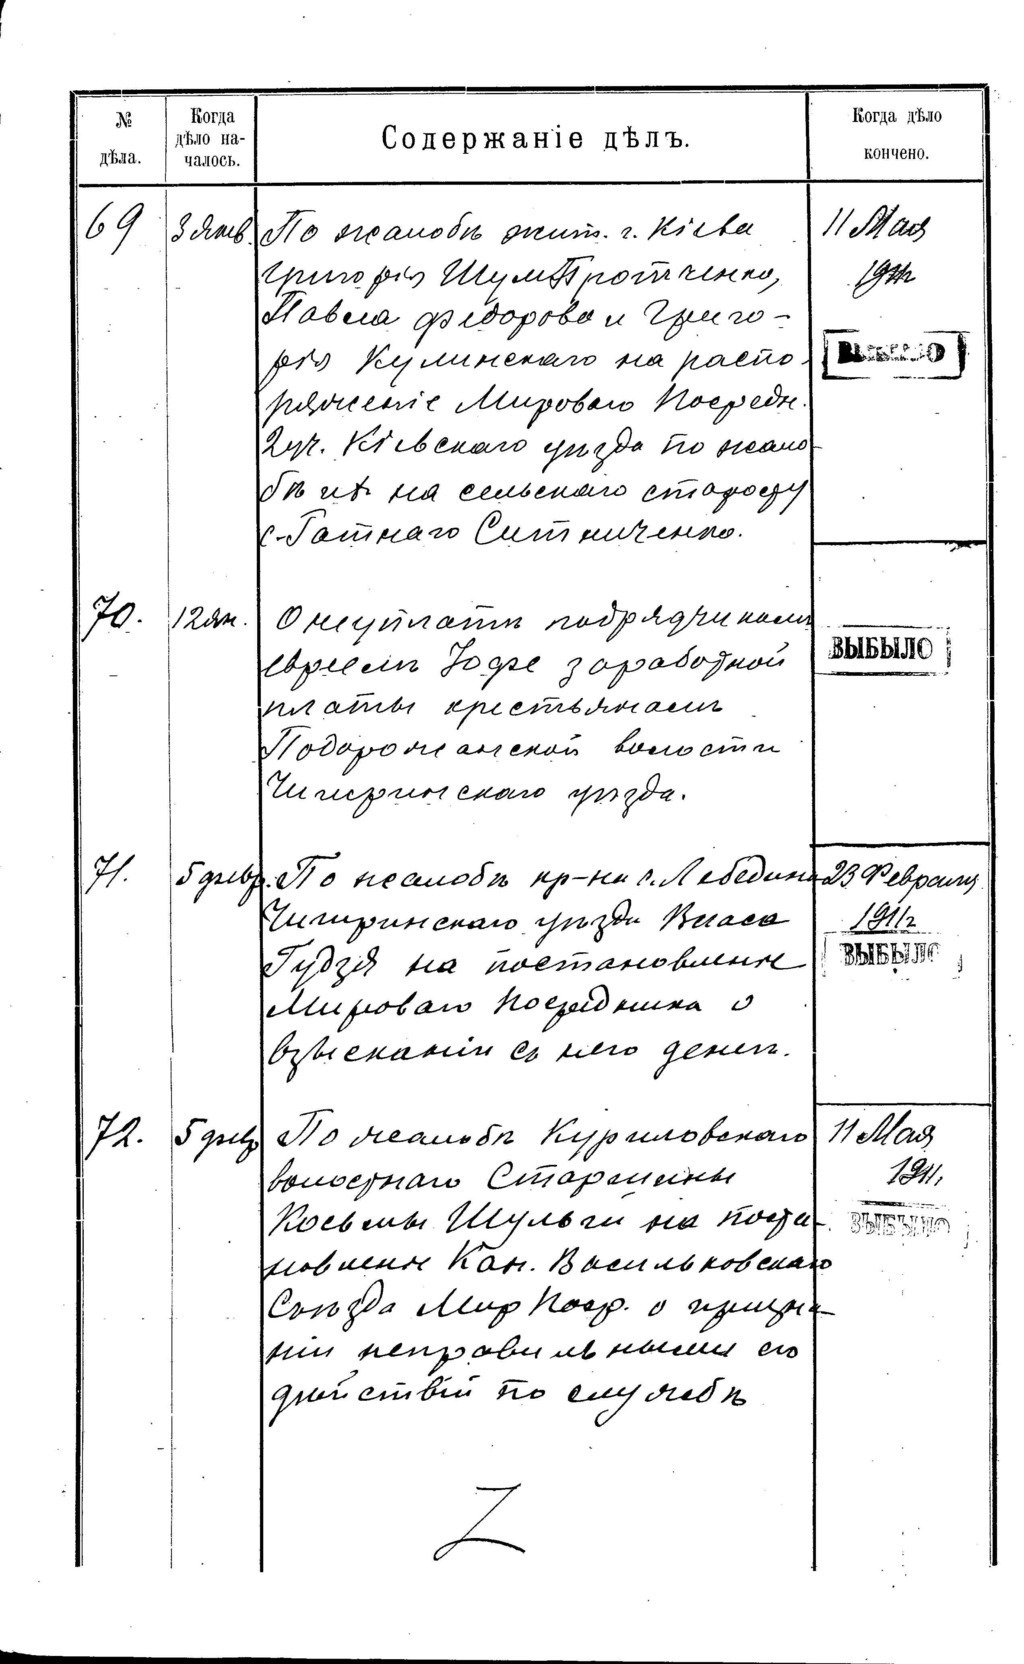 № дѣла.
Когда дѣло на-
чалось.
Содержаніе дѣлъ.
Когда дѣло
кончено.
69
3 Янв.
По жалобѣ жит. г. Кіева
Григорія Протченко,
Павла Федорова и Григо-
рія Кулинскаго на распо-
ряженіе Мирового Посредн.
2 уч. Кіевскаго уѣзда по жало-
бѣ их на сельскаго старосту
с. Гатнаго Ситниченко.
11 Мая
1911г
ВЫБЫЛО
70.
12 ян.
О неуплатѣ подрядчикомъ
евреемъ Іофе заработной
платы крестьянамъ
Подорожанской волости
Чигиринскаго уѣзда.
ВЫБЫЛО
71.
5 февр.
По жалобѣ кр-на с. Лебедина
Чигиринскаго уѣзда Власа
Гудзя на постановленіе
Мирового Посредника о
взысканіи съ него денег.
23 Февраля
1911г
ВЫБЫЛО
72.
5 февр
По жалобѣ Куриловскаго
волостнаго Старшины
Косьмы Шульги на поста-
новленіе Кан. Васильковскаго
Съѣзда Мир Поср. о призна-
ніи неправильными его
дѣйствій по службѣ
11 Мая
1911.
ВЫБЫЛО